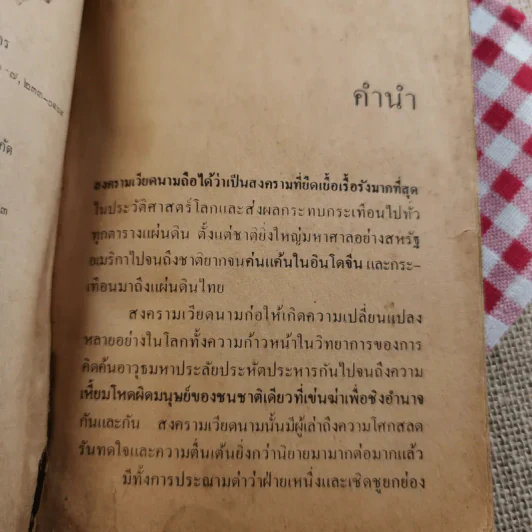 คำนำ
สงครามเวียดนามถือได้ว่าเป็นสงครามที่ยืดเยื้อเรื้อรังมากที่สุด
ในประวัติศาสตร์โลกและส่งผลกระทบกระเทือนไปทั่ว
ทุกตารางแผ่นดิน ตั้งแต่ชาติยิ่งใหญ่มหาศาลอย่างสหรัฐ
อเมริกาไปจนถึงชาติยากจนค่นแค้นในอินโดจีน และกระ-
เทือนมาถึงแผ่นดินไทย
สงครามเวียดนามก่อให้เกิดความเปลี่ยนแปลง
หลายอย่างในโลกทั้งความก้าวหน้าในวิทยาการของการ
คิดค้นอาวุธมหาประลัยประหัตประหารกันไปจนถึงความ
เหี้ยมโหดผิดมนุษย์ของชนชาติเดียวที่เข่นฆ่าเพื่อชิงอำนาจ
กันและกัน สงครามเวียดนามนั้นมีผู้เล่าถึงความโศกสลด
รันทดใจและความตื่นเต้นยิ่งกว่านิยายมามากต่อมากแล้ว
มีทั้งการประณามด่าว่าฝ่ายเหนึ่งและเชิดชูยกย่อง